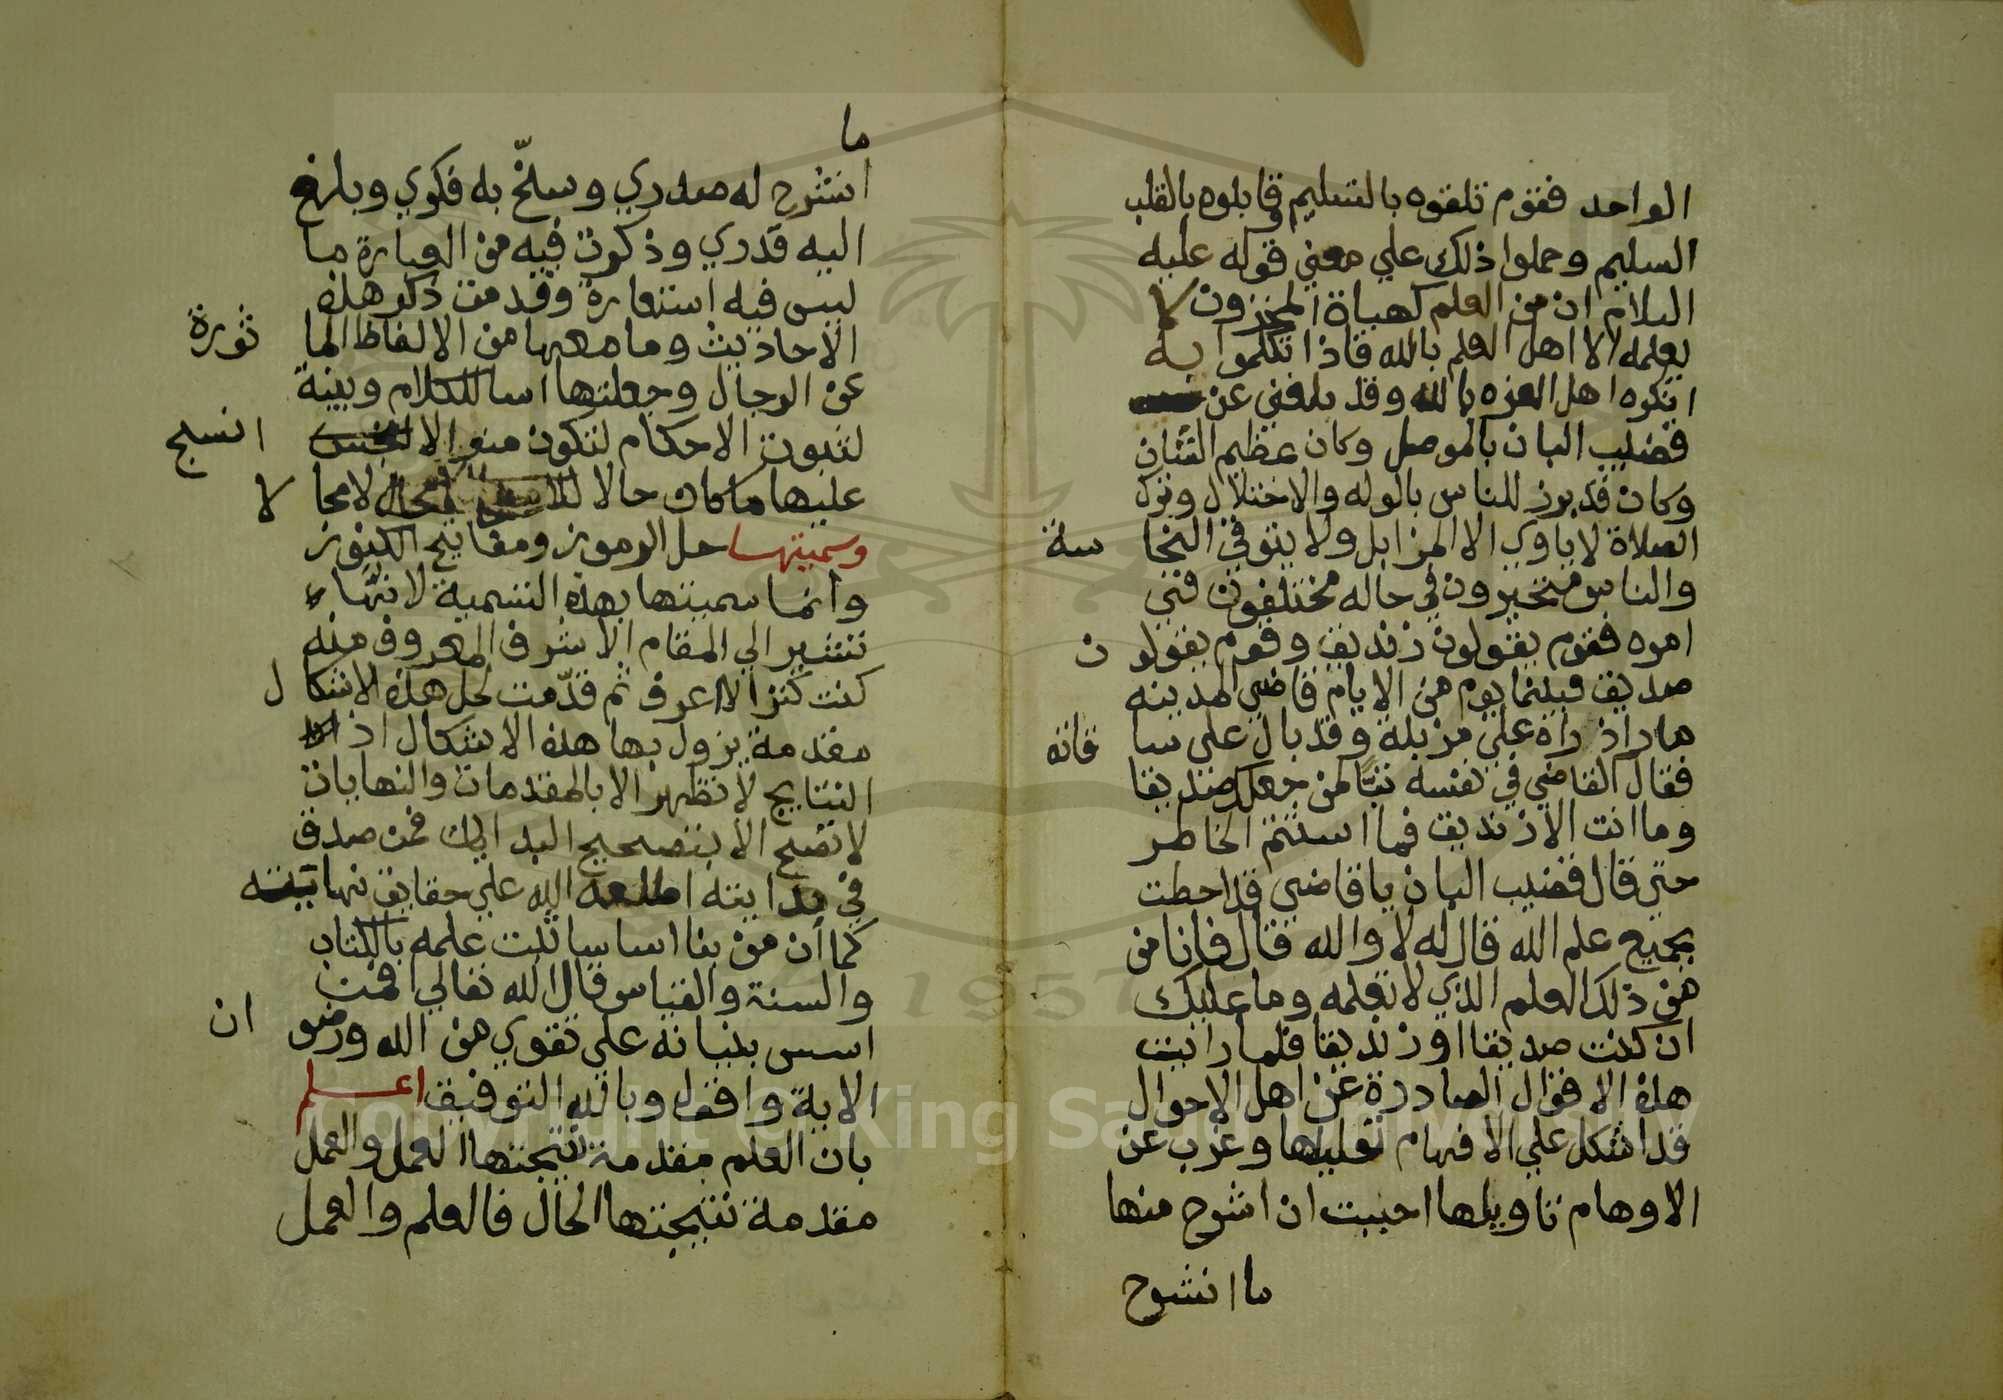 الواحد فقوم تلقوه بالتسليم وقابلوه بالقلب
السليم وحملوا ذلك علي معني قوله عليه
السلام ان من العلم كهياة المخزون لا
يعلمه الا اهل العلم بالله فاذا تكلموا به
انكره اهل الغره بالله وقد بلغني عن
قضيب البان بالموصل وكان عظيم الشان
وكان قد برز للناس بالوله والاختلال وترك
الصلاة لا ياوي الا المزابل ولا يتوقي النجا سة
والناس متحيرون في حاله مختلفون في
امره فقوم يقولون زنديق وقوم يقولو ن
صديق فبينما يوم من الايام قاضي المدينه
مارا اذ راه علي مزبلة وقد بال علي سا قانه
فقال القاضي في نفسه تبا لمن جعلك صديقا
وما انت الا زنديق فما استتم الخاطر
حتي قال قضيب البان يا قاضي قد احطت
بجميع علم الله قال له لا والله قال فانا من
من ذلك العلم الذي لا تعلمه وما عليك
ان كنت صديقا او زنديقا فلما رايت
هذه الاقوال الصادرة عن اهل الاحوال
قد اشكل علي الافهام تعليلها وعزب عن
الاوهام تاويلها احببت ان اشرح منها
ما انشرح
ما
انشرح له صدري وسنح به فكري وبلغ
اليه قدري وذكرت فيه من العبارة ما
ليس فيه استعارة وقدمت ذكر هذه
الاحاديث وما معها من الالفاظ الما ثورة
عن الرجال وجعلتها اسا للكلام وبينة
لثبوت الاحكام لتكون منوالا انسج
عليها ما كان حالا لا محا لا
وسميتها حل الرموز ومفاتيح الكنوز
وانما سميتها بهذه التسمية لانها
تشير الي المقام الاشرف المعروف منه
كنت كنزا لا اعرف ثم قدمت لحل هذه الاشكا ل
مقدمة يزول بها هذه الاشكال اذ
النتايج لا تظهر الا بالمقدمات والنهايات
لا تصح الا بتصحيح البدايات فمن صدق
في بدايته اطلعه الله علي حقايق نهايته
كما ان من بنا اساسا ثبت علمه بالكتاب
والسنة والقياس قال الله تعالي افمن
اسس بنيانه علي تقوي من الله ورضو ان
الاية واقول وبالله التوفيق اعلم
بان العلم مقدمة نتيجتها العمل والعمل
مقدمة نتيجتها الحال فالعلم والعمل
Copyright © King Saud University
1957